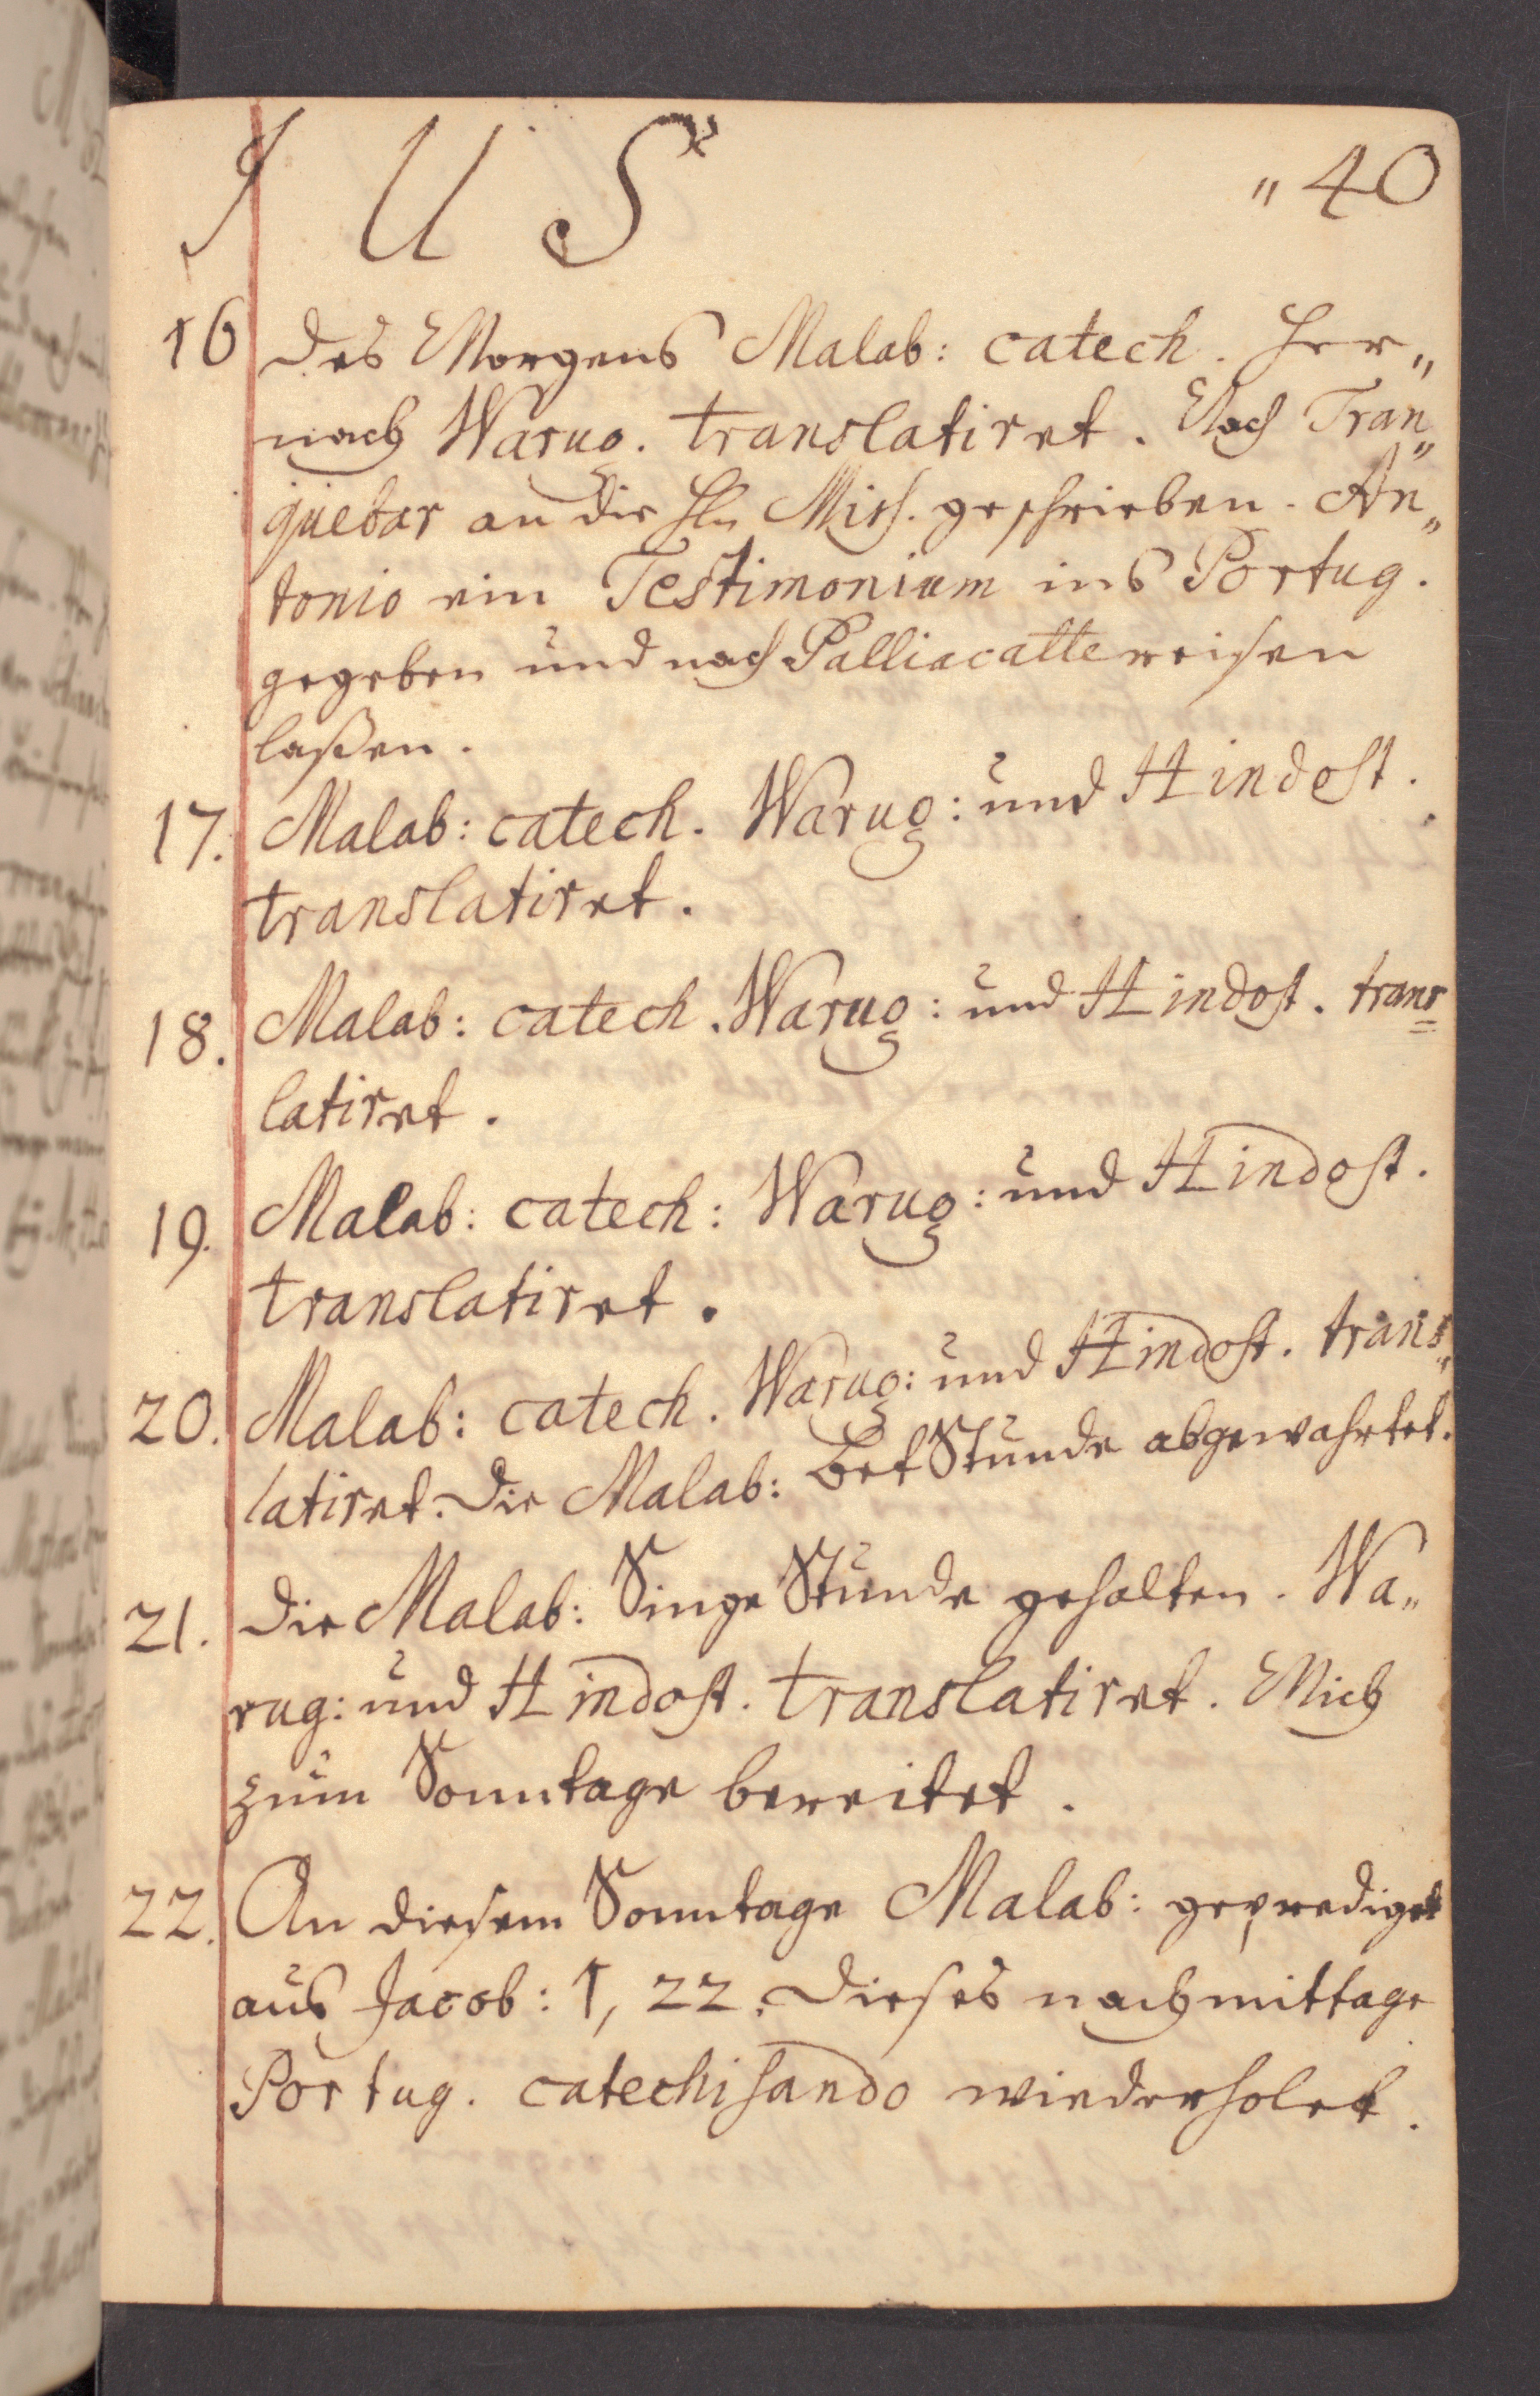 I U S
„ 40
16 Des Morgens Malab: catech. Her„
nach Warug. translatiret. Nach Tran„
quebar an die Hln Miss. geschrieben. An„
tonio ein Testimonium ins Portug.
gegeben und nach Palliacatte reisen
laßen.
17. Malab: catech. Warug: und Hindost.
translatiret.
18. Malab: catech. Warug: und Hindost. trans=
latiret.
19. Malab: catech: Warug: und Hindost.
translatiret.
20. Malab: catech. Warug: und Hindost. trans„
latiret. Die Malab: BetStunde abgewahrtet.
21. Die Malab: Singe Stunde gehalten. Wa„
rug: und Hindost. translatiret. Mich
zum Sonntage bereitet.
22. An diesem Sonntage Malab: geprediget
aus Jacob: 1, 22. Dieses nachmittage
Portug. catechisando wiederholet.